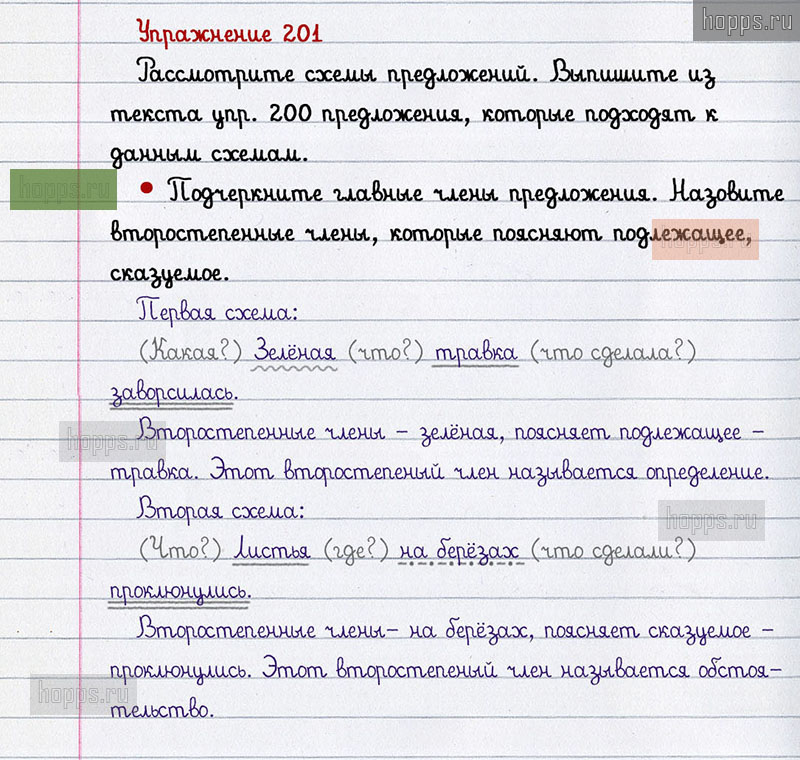 hopps.ru
Упражнение 201
Рассмотрите схемы предложений. Выпишите из
текста упр. 200 предложения, которые подходят к
данным схемам.
hopps.ru
• Подчеркните главные члены предложения. Назовите
второстепенные члены, которые поясняют подлежащее,
hopps.ru
сказуемое.
Первая схема:
(Какая?) Зелёная (что?) травка (что сделала?)
заворсилась.
Второстепенные члены – зелёная, поясняет подлежащее –
hopps.ru
травка. Этот второстепеный член называется определение.
Вторая схема:
hopps.ru
(Что?) Листья (где?) на берёзах (что сделали?)
проклюнулись.
Второстепенные члены– на берёзах, поясняет сказуемое –
проклюнулись. Этот второстепеный член называется обстоя–
hopps.ru
тельство.